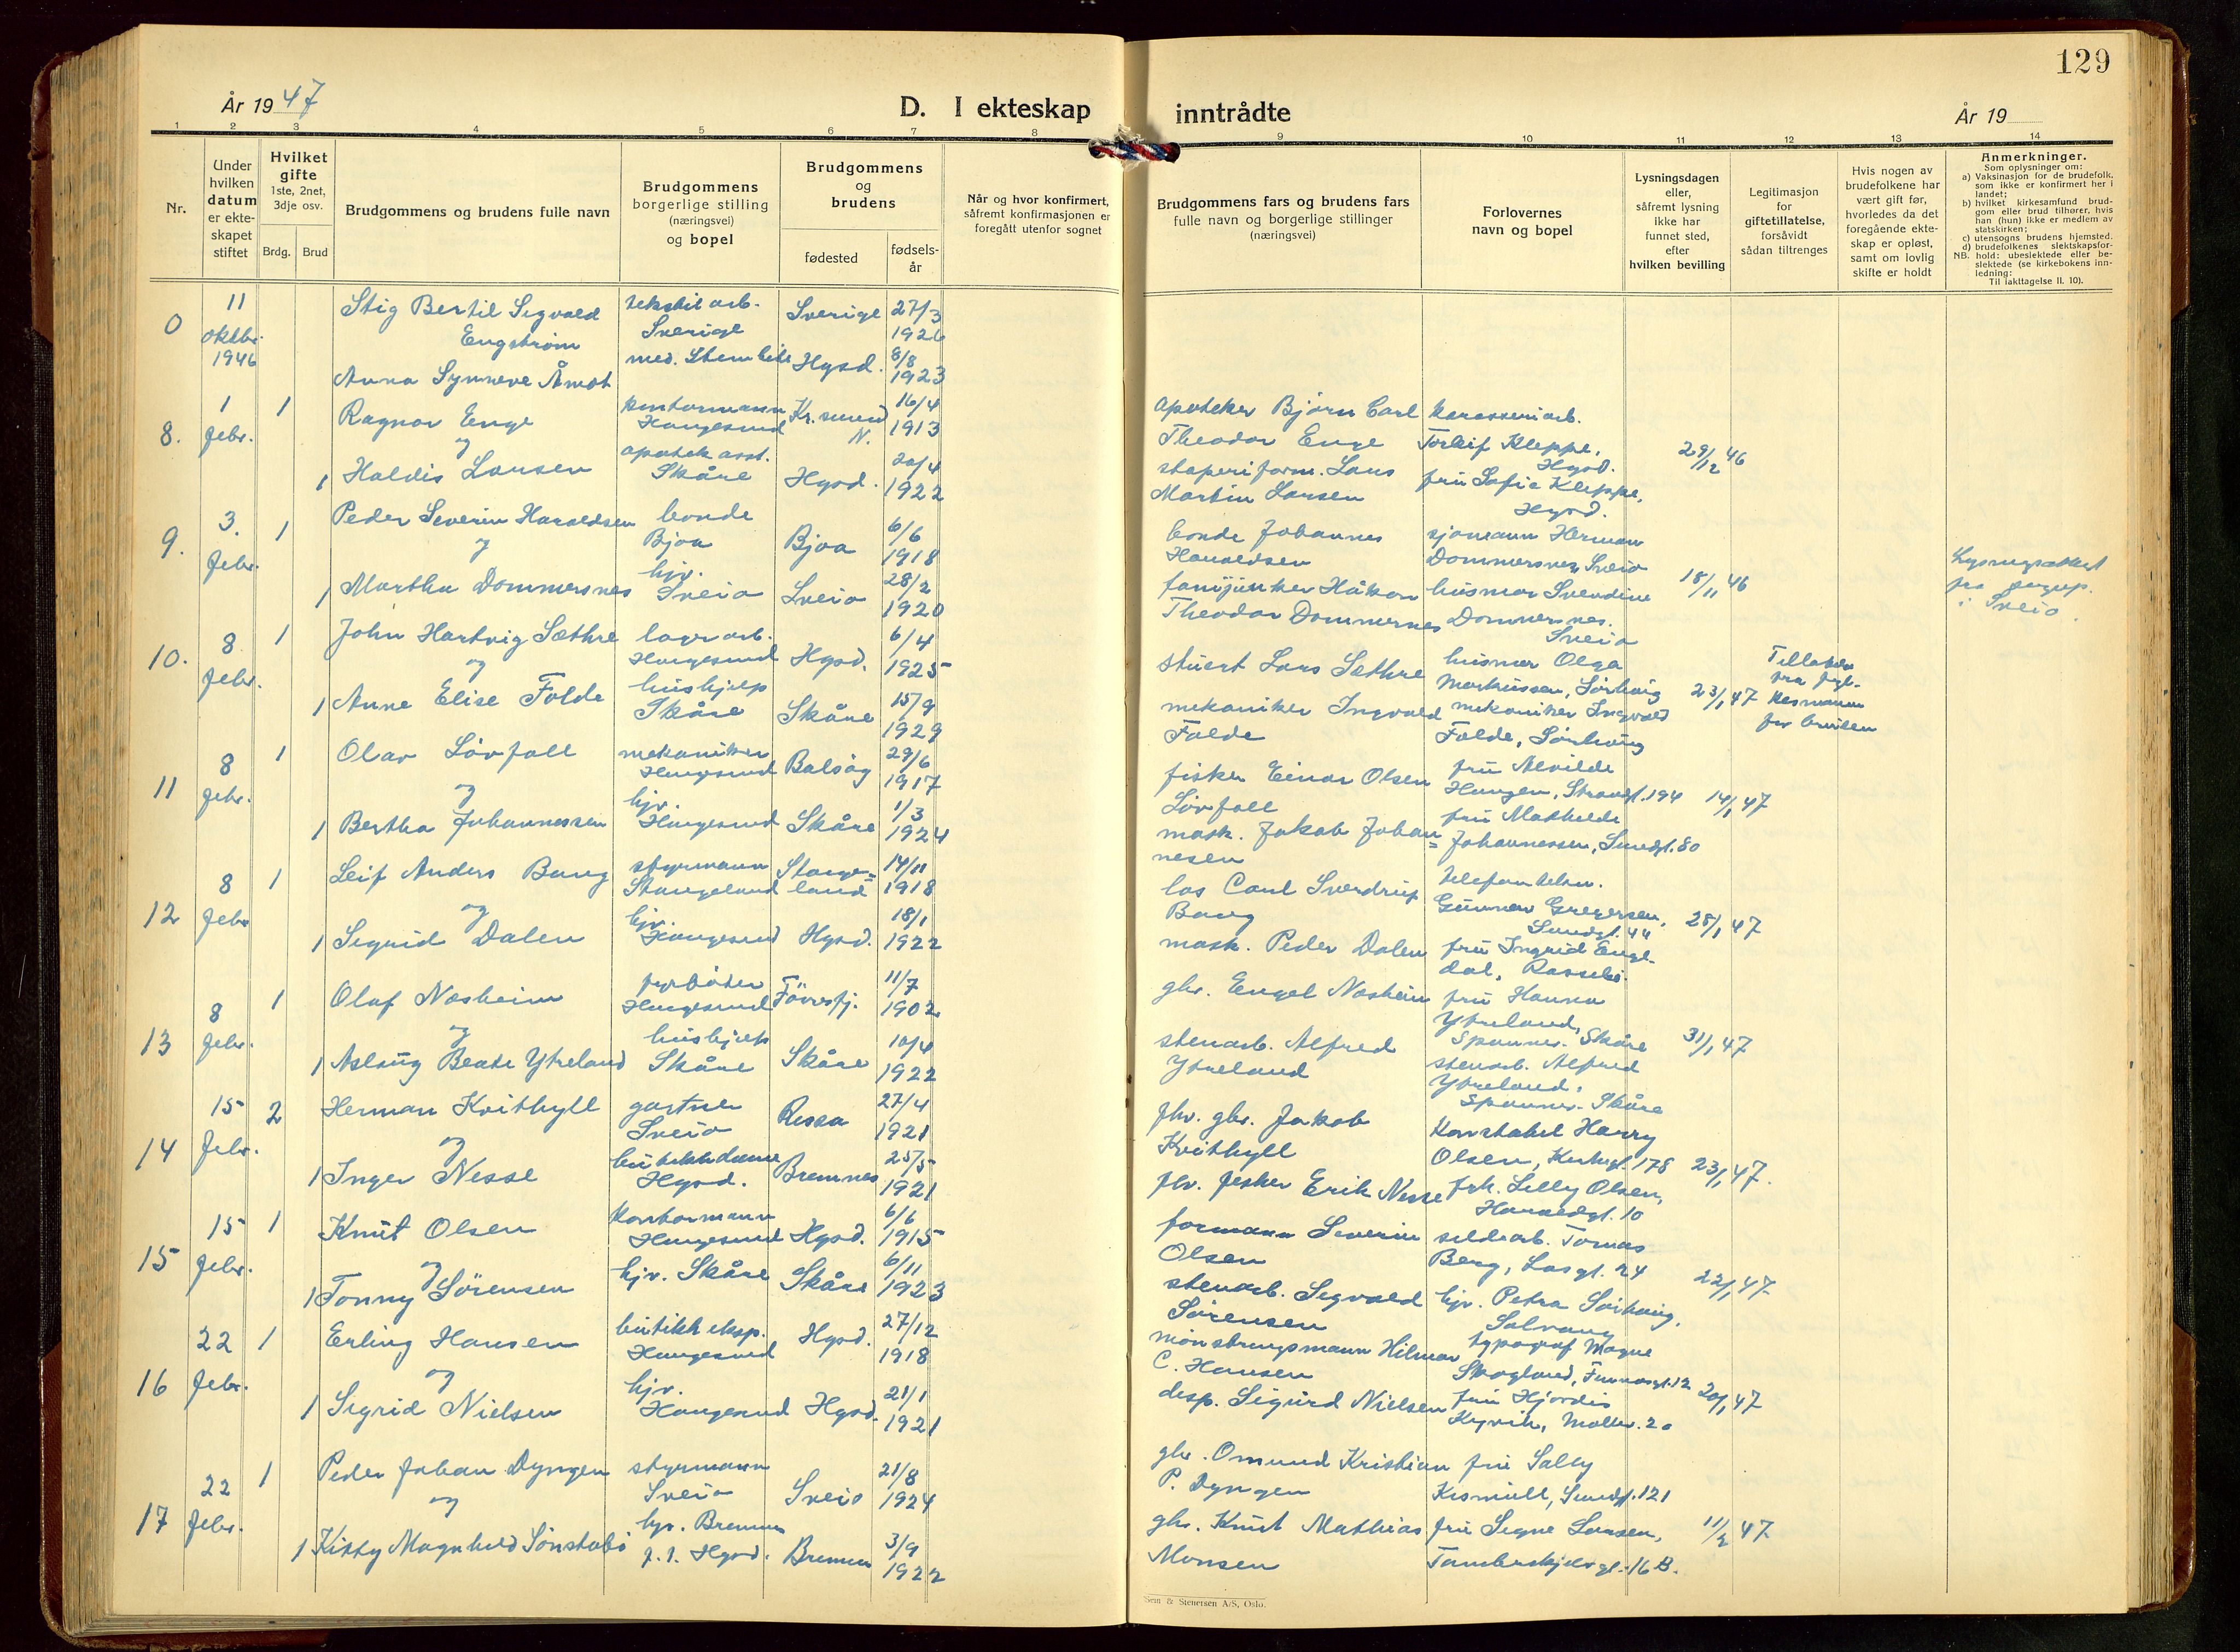 129
År 1947
D. I ekteskap inntrådte
År 19
1 2 3 4 5 6 7 8 9 10 11 12 13 14
Nr.
Under
hvilken
datum
er ekte-
skapet
stiftet
Hvilket
gifte
1ste, 2net,
3dje osv.
Brdg. Brud
Brudgommens og brudens fulle navn
Brudgommens
borgerlige stilling
(næringsvei)
og bopel
Brudgommens
og
brudens
fødested
fødsels-
år
Når og hvor konfirmert,
såfremt konfirmasjonen er
foregått utenfor sognet
Brudgommens fars og brudens fars
fulle navn og borgerlige stillinger
(næringsvei)
Forlovernes
navn og bopel
Lysningsdagen
eller,
såfremt lysning
ikke har
funnet sted,
efter
hvilken bevilling
Legitimasjon
for
giftetillatelse,
forsåvidt
sådan tiltrenges
Hvis nogen av
brudefolkene har
vært gift før,
hvorledes da det
foregående ekte-
skap er opløst,
samt om lovlig
skifte er holdt
Anmerkninger.
Som oplysninger om:
a) Vaksinasjon for de brudefolk,
som ikke er konfirmert her i
landet;
b) hvilket kirkesamfund brud-
gom eller brud tilhører, hvis
han (hun) ikke er medlem av
statskirken;
c) utensogns brudens hjemsted.
d) brudefolkenes slektskapsfor-
hold: ubeslektede eller be-
slektede (se kirkebokens inn-
ledning:
NB.
Til iakttagelse II. 10).
0
11
oktbr.
1946
Stig Bertil Sigvald
Engstrøm
tekstil arb.
Sverige
Sverige
27/3
1926
Anna Synneve Åmot
med.
Hgsd.
8/8
1923
8.
1
febr.
1
Ragnar Enge
og
kontormann
Haugesund
Kr.sund
N.
16/4
1913
1 Haldis Larsen
apotek asst.
Skåre
Hgsd.
20/4
1922
apoteker Bjørn Carl
Theodor Enge
Martin Larsen
karosseriarb.
Torleif Kleppe,
Hgsd.
fru Sofie Kleppe,
Hgsd.
29/12 46
9.
3.
febr.
1
Peder Severin Haraldsen
og
bonde
Bjoa
Bjoa
6/6
1918
1 Martha Dommersnes
hjv.
Sveio
Sveio
28/2
1920
bonde Johannes
Haraldsen
fanejunker Håkon
Theodor Dommersnes
sjømann Herman
Dommersnes, Sveio
husmor Svendine
Dommersnes.
Sveio
18/11 46
fra
i Sveio.
10.
8
febr.
1
John Hartvig Sæthre
og
lagerarb.
Haugesund
Hgsd.
6/4
1925
1 Anne Elise Folde
hushjelp
Skåre
Skåre
15/9
1929
stuert Lars Sæthre
mekaniker Ingvald
Folde
husmor Olga
Markussen, Sørhaug
mekaniker Ingvald
Folde, Sørhaug
23/1 47
Tillatelse
fra fyl-
kesmannen
for bruden
11
8
febr.
1
Olav Løvfall
og
mekaniker
Haugesund
29/6
1917
1 Bertha Johannessen
hjv.
Haugesund
Skåre
1/3
1924
fisker Einar Olsen
Løvfall
mask. Jakob Johan=
nesen
fru Alvilde
Haugen, Strandgt. 194
fru Mathilde
Johannessen, Smedgt. 80
14/1 47
12
8
febr
1
Leif Anders Bang
og
styrmann
Stangeland
Stange=
land
14/11
1918
1 Sigrid Dalen
hjv.
Haugesund
Hgsd.
18/1
1922
los Carl Sverdrup
Bang
mask. Peder Dalen
Gunnar Gregersen,
Smedgt. 44
fru Ingrid Enge-
dal, Rossebø.
28/1 47
13
8
febr.
1
Olaf Nasheim
og
fyrbøter
Haugesund
Førresfj.
11/7
1902
1 Aslaug Beate Ytreland
hushjelp
Skåre
Skåre
10/4
1922
gbr. Engel Nasheim
stenarb. Alfred
Ytreland
fru Hanna
Ytreland,
Spannar. Skåre
stenarb. Alfred
Ytreland,
Spannar. Skåre
31/1 47
14
15
febr.
2
Herman Kvithyll
og
gartner
Sveio
Rissa
27/4
1921
1 Inger Nesse
butikkdame
Hgsd.
Bremnes
25/5
1921
fhv. gbr. Jakob
Kvithyll
fhv. fisker Erik Nesse
konstabel Harry
Olsen, Kirkegt. 178
frk. Lilly Olsen,
Haraldgt. 10
23/1 47.
15
15
febr.
1
Knut Olsen
og
kontormann
Haugesund
Hgsd.
6/6
1915
1 Tonny Sørensen
hjv. Skåre
Skåre
6/11
1923
formann Severin
Olsen
stenarb. Sigvald
Sørensen
sildearb. Tomas
Berg, Lasgt. 24
hjv. Petra Sørhaug,
Salvang
22/1 47
16
22
febr.
1
Erling Hansen
og
butikkeksp.
Haugesund
Hgsd.
27/12
1918
1 Sigrid Nielsen
hjv.
Haugesund
Hgsd.
21/1
1921
mønstringsmann Hilmar
C. Hansen
desp. Sigurd Nielsen
typograf Magne
Skogland, Finnasgt. 12
fru Hjørdis
Kyvik, Møller. 20
20/1 47
17
22
febr.
1
Peder Johan Dyngen
og
styrmann
Sveio
Sveio
21/8
1924
1 Kitty Magnhild Sønstabø
hjv. Bremnes
p.t. Hgsd.
Bremnes
3/9
1922
gbr. Omund Kristian
P. Dyngen
gbr. Knut Mathias
Monsen
fru Sally
Kismull, Smedgt. 121
fru Signe Larsen,
Tamberskjelvsgt. 16 B.
11/2 47
Sem & Stenersen A/S, Oslo.